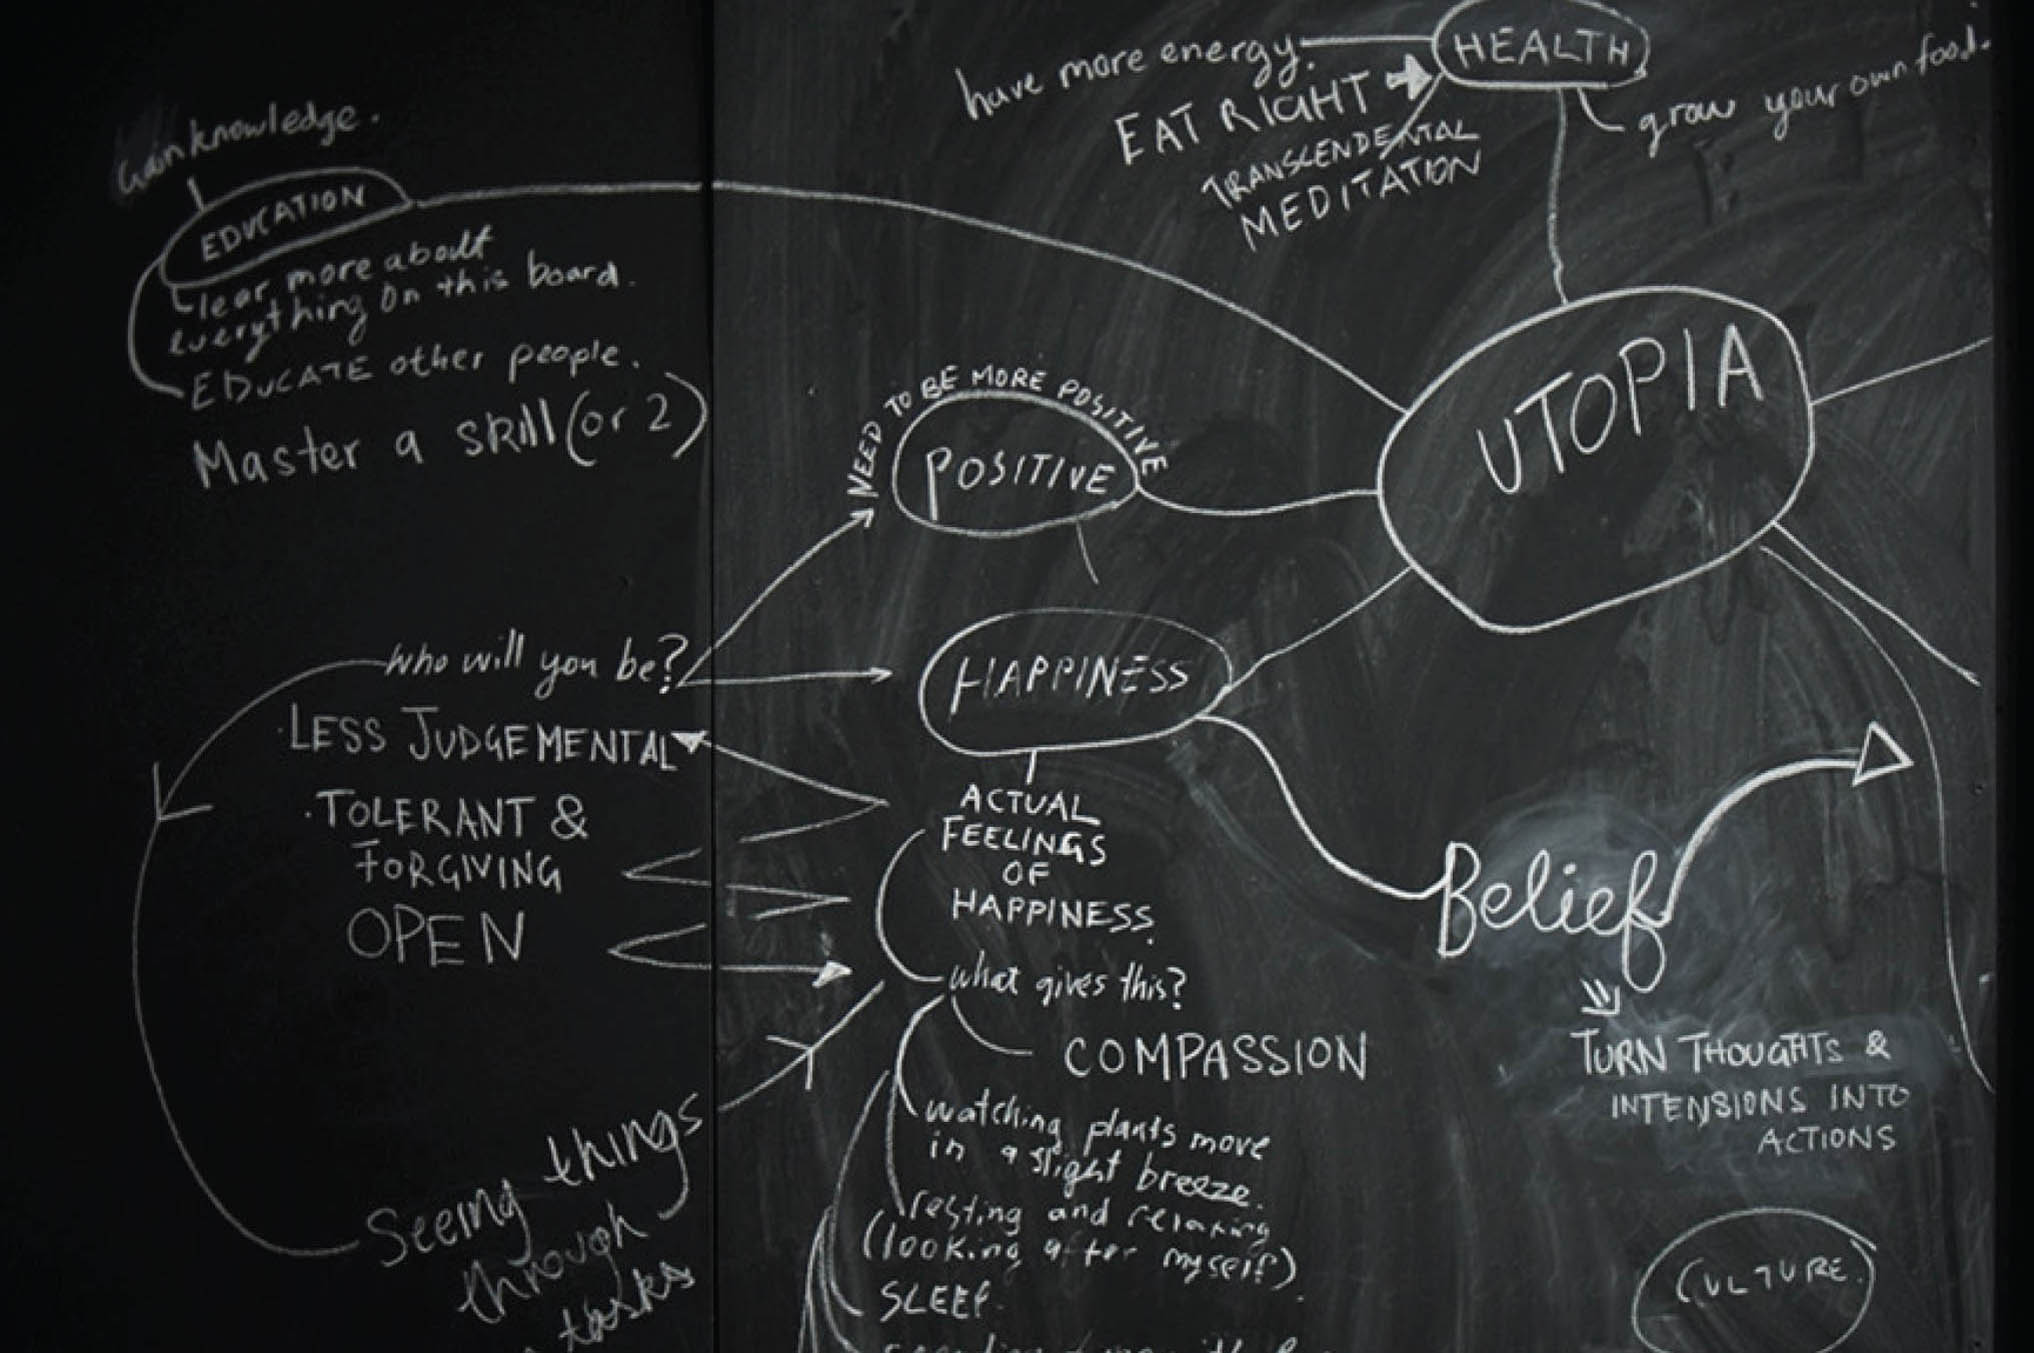 HEALTH
have more energy.
EAT RIGHT
TRANSCENDENTAL
MEDITATION
grow your own food.
Gain knowledge.
EDUCATION
lear more about
everything on this board.
EDUCATE other people.
Master a skill (or 2)
UTOPIA
NEED TO BE MORE POSITIVE
POSITIVE
who will you be?
HAPPINESS
LESS JUDGEMENTAL
·TOLERANT &
FORGIVING
OPEN
ACTUAL
FEELINGS
OF
HAPPINESS.
what gives this?
COMPASSION
watching plants move
in a slight breeze.
resting and relaxing
(looking after myself).
SLEEP.
Belief
TURN THOUGHTS &
INTENSIONS INTO
ACTIONS
Seeing things
through
tasks
CULTURE.